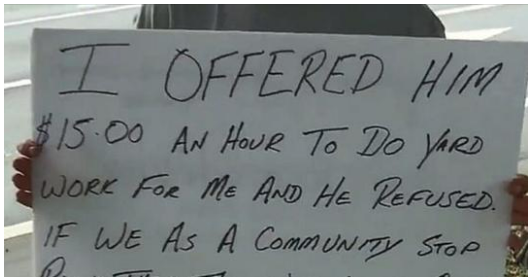 I OFFERED HIM
$15.00 AN HOUR TO DO YARD
WORK FOR ME AND HE REFUSED.
IF WE AS A COMMUNITY STOP